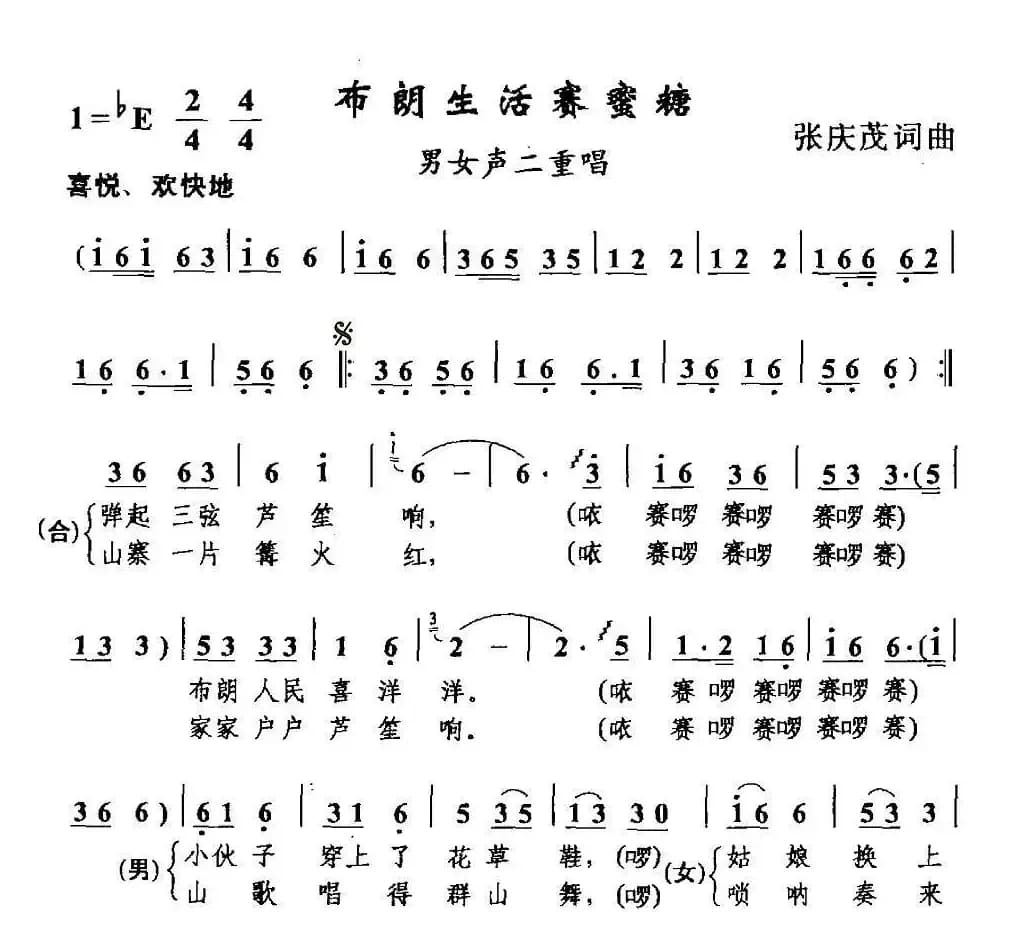 布朗生活赛蜜糖
1=♭E 2/4 4/4
男女声二重唱
张庆茂词曲
喜悦、欢快地
(i6i 63 | i6 6 | i6 6 | 365 35 | 12 2 | 12 2 | 166 62 |
16 6·1 | 56 6 𝄋 ‖: 36 56 | 16 6.1 | 36 16 | 56 6 ) :‖
36 63 | 6 i | i 6 – | 6· 3 | i6 36 | 53 3·(5 |
(合) 弹起 三弦 芦 笙 响, (咴 赛啰 赛啰 赛啰 赛)
山寨 一片 篝 火 红, (咴 赛啰 赛啰 赛啰 赛)
13 3 ) | 53 33 | 1 6 | 3 2 – | 2· 5 | 1·2 16 | i6 6·(i |
布朗 人民 喜 洋 洋。 (咴 赛 啰 赛啰 赛啰 赛)
家家 户户 芦 笙 响。 (咴 赛 啰 赛啰 赛啰 赛)
36 6 ) | 61 6 | 31 6 | 5 35 | 13 30 | i6 6 | 53 3 |
(男) 小伙 子 穿上 了 花 草 鞋, (啰) (女) 姑 娘 换 上
山 歌 唱 得 群 山 舞, (啰) 唢 呐 奏 来